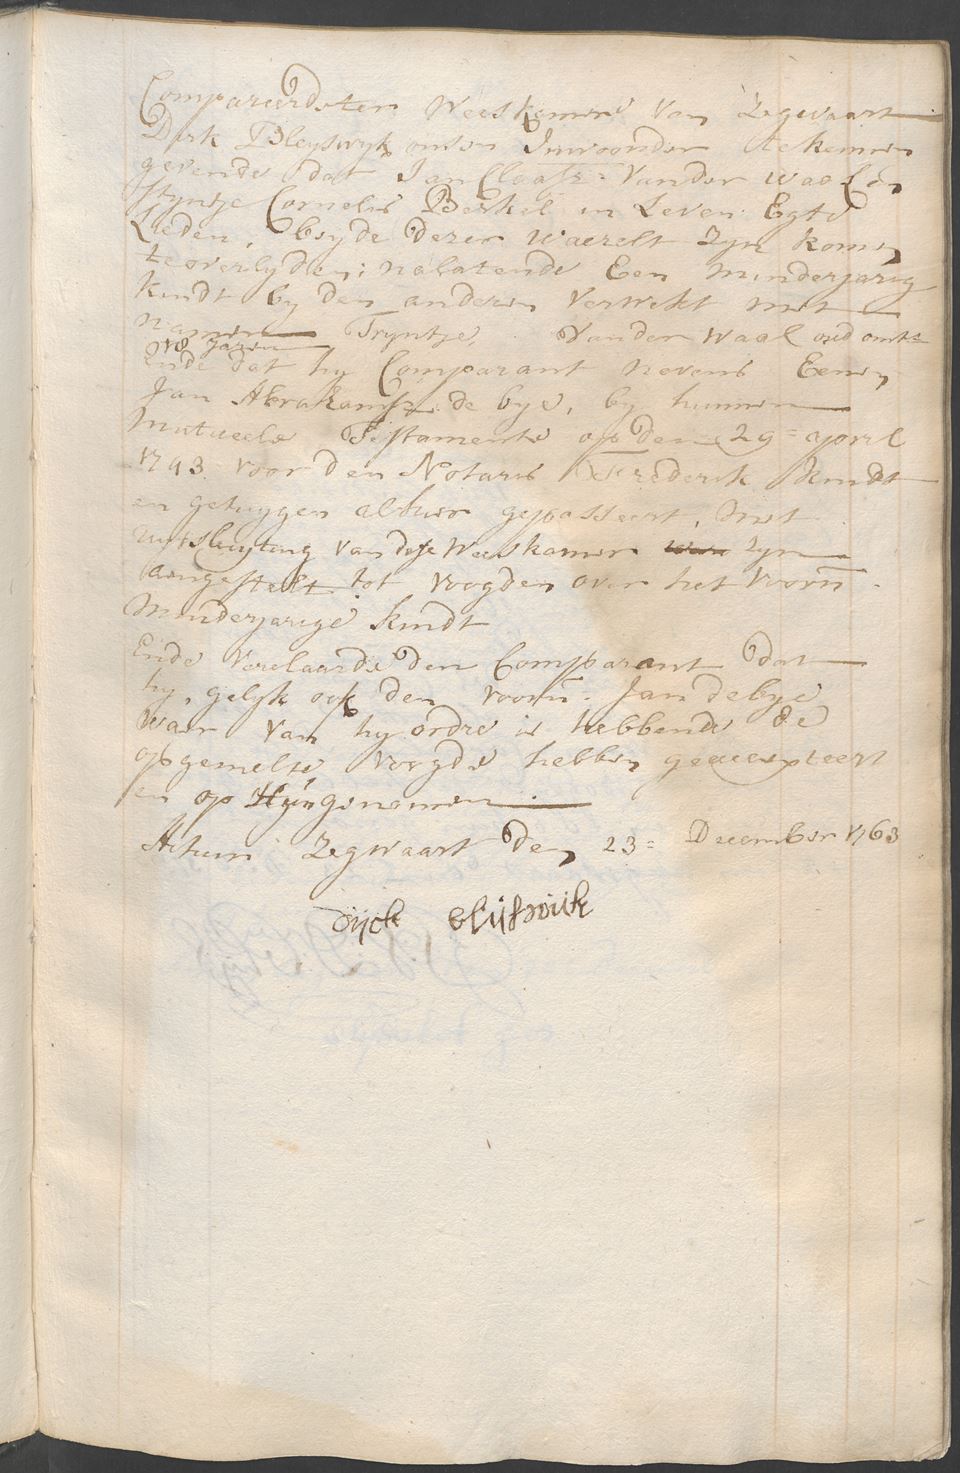 Compareerde ter Weeskamere van Zegwaart
Dirk Bleyswyk onsen Inwoonder te kennen
gevende dat Jan Claasz= vander Waal en
Fyntje Cornelis Berkel in Leven Egte
Lieden, beyde deser waerelt zyn komen
te overlyden; nalatende Een minderjarig
kindt by den anderen verwekt met
namen Tryntje, vander Waal oud omt=
18 jaren
Ende dat hy Comparant nevens Eenen
Jan Abrahamsz de bye, by hunnen
mutueele Testamente op den 29= april
1743 voor den Notaris Frederik Kindt
en getuygen alhier gepasseert, met
uytsluyting van dese Weeskamer zyn
aangestelt tot voogden over het voorn
minderjarige kindt
Ende verclaarde den Comparant dat
hy, gelyk ook den voorn. Jan de bye
waar van hy ordre is hebbende de
opgemelte voogdie hebben geaccepteert
en op Hun genomen
Actum Zegwaart den 23= December 1763
dijck blijswijk